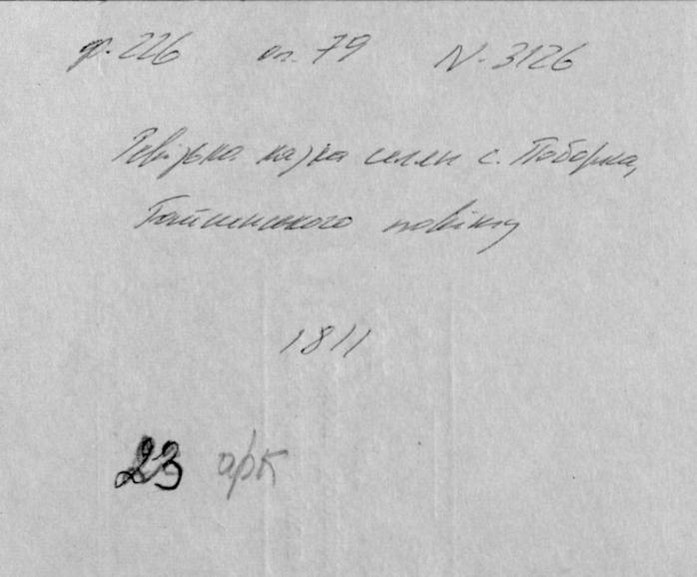 ф. 226 оп. 79 N. 3126
Ревізька казка селян с. Поборка,
Гайсинського повіту
1811
23 арк